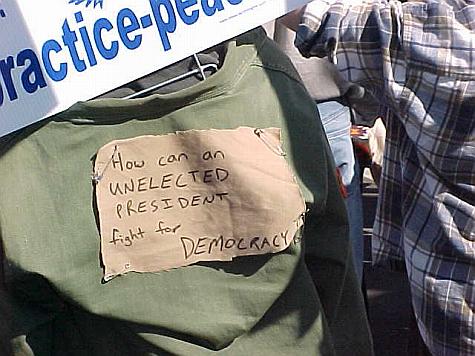 practice-pea
How can an
UNELECTED
PRESIDENT
fight for
DEMOCRACY